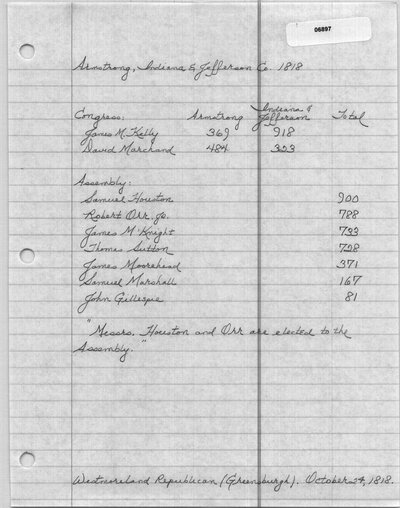 06897
Armstrong, Indiana & Jefferson Co. 1818
Congress: Armstrong Indiana & Jefferson Total
James M. Kelly 369 918
David Marchand 484 323
Assembly:
Samuel Houston 900
Robert Orr. Jr. 788
James M Knight 733
Thomas Sutton 708
James Moorehead 371
Samuel Marshall 167
John Gillespie 81
"Messrs. Houston and Orr are elected to the
Assembly."
Westmoreland Republican (Greensburgh). October 24, 1818.